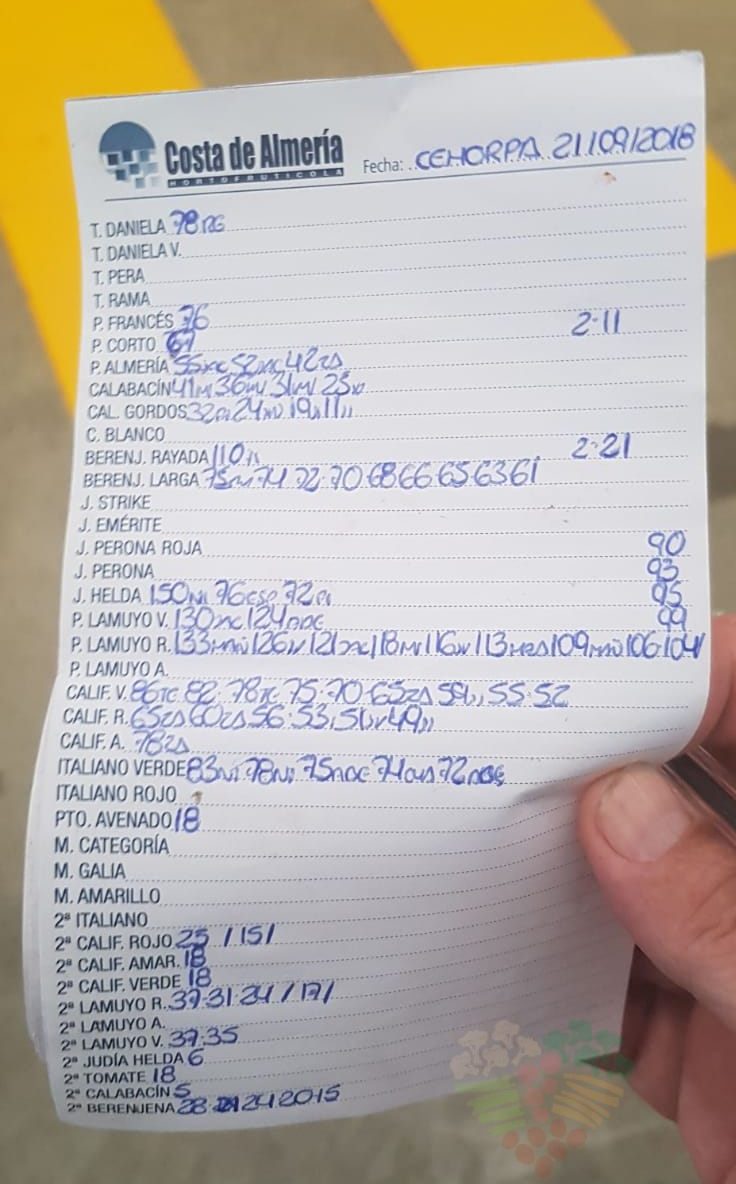 Costa de Almería
HORTOFRUTICOLA
Fecha: CEHORPA 21/09/2018
T. DANIELA 78
T. DANIELA V.
T. PERA
T. RAMA
P. FRANCÉS 76
P. CORTO 67 2-11
P. ALMERÍA 55 52 42
CALABACÍN 41 36 31 25
CAL. GORDOS 32 24 19 11
C. BLANCO
BERENJ. RAYADA 110 2-21
BERENJ. LARGA 75 74 72 70 68 66 65 63 61
J. STRIKE
J. EMÉRITE
J. PERONA ROJA 90
J. PERONA 93
J. HELDA 150 76 72 95
P. LAMUYO V. 130 124 99
P. LAMUYO R. 133 126 121 118 116 113 109 106 104
P. LAMUYO A.
CALIF. V. 86 82 78 75 70 65 59 55 52
CALIF. R. 65 60 56 53 51 49
CALIF. A. 78
ITALIANO VERDE 83 78 75 74 72
ITALIANO ROJO
PTO. AVENADO 18
M. CATEGORÍA
M. GALIA
M. AMARILLO
2ª ITALIANO
2ª CALIF. ROJO 25 /15/
2ª CALIF. AMAR. 18
2ª CALIF. VERDE 18
2ª LAMUYO R. 37 31 24 /17/
2ª LAMUYO A.
2ª LAMUYO V. 37 35
2ª JUDÍA HELDA 6
2ª TOMATE 18
2ª CALABACÍN 5
2ª BERENJENA 28 24 20 15